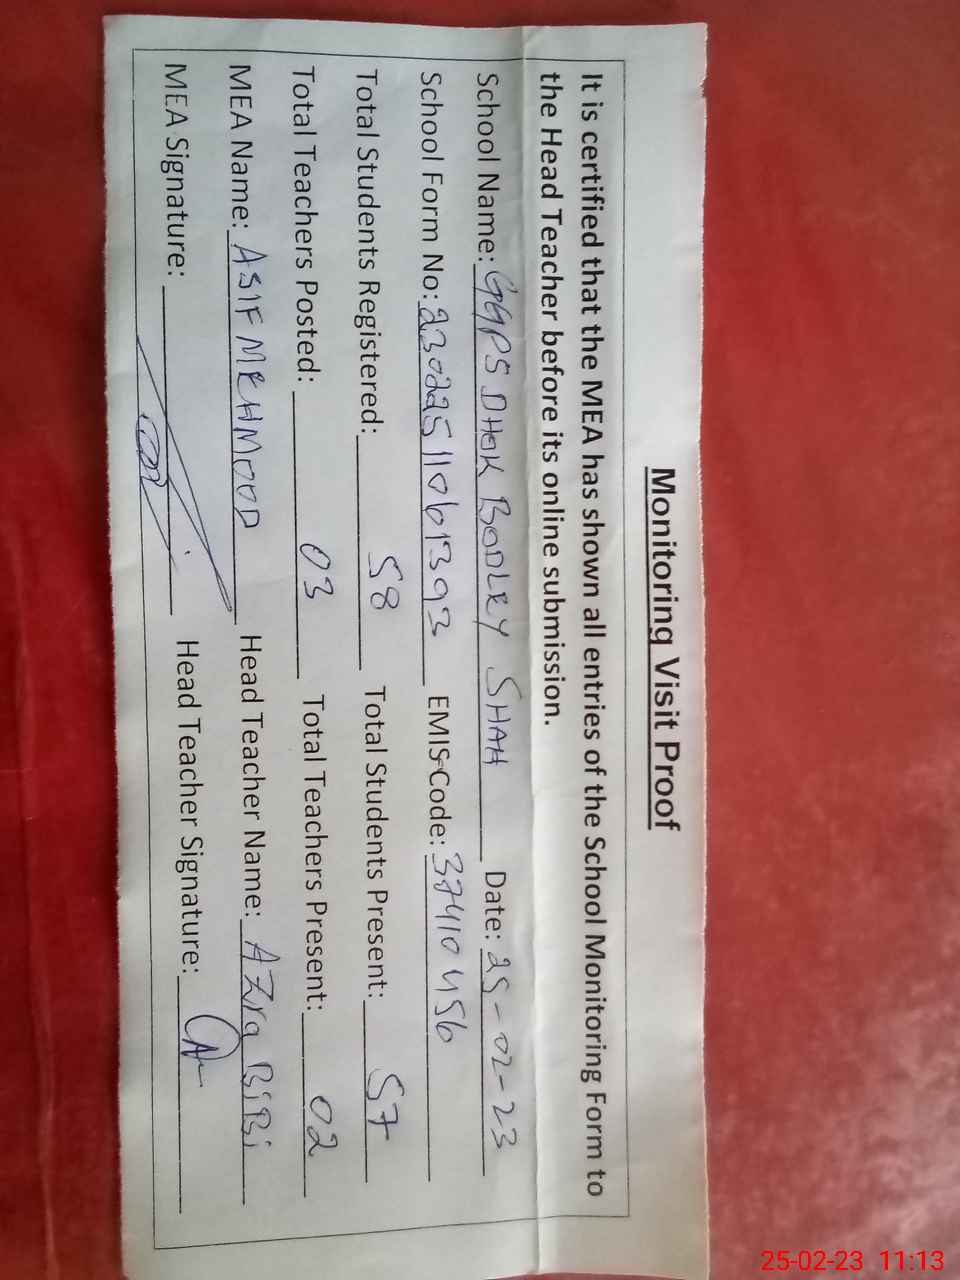 Monitoring Visit Proof
It is certified that the MEA has shown all entries of the School Monitoring Form to
the Head Teacher before its online submission.
School Name: GGPS DHOK BODLEY SHAH Date: 25-02-23
School Form No: 23022511061393 EMIS Code: 37410456
Total Students Registered: 58 Total Students Present: 57
Total Teachers Posted: 03 Total Teachers Present: 02
MEA Name: ASIF MEHMOOD Head Teacher Name: AZra BiBi
MEA Signature: Head Teacher Signature:
25-02-23 11:13